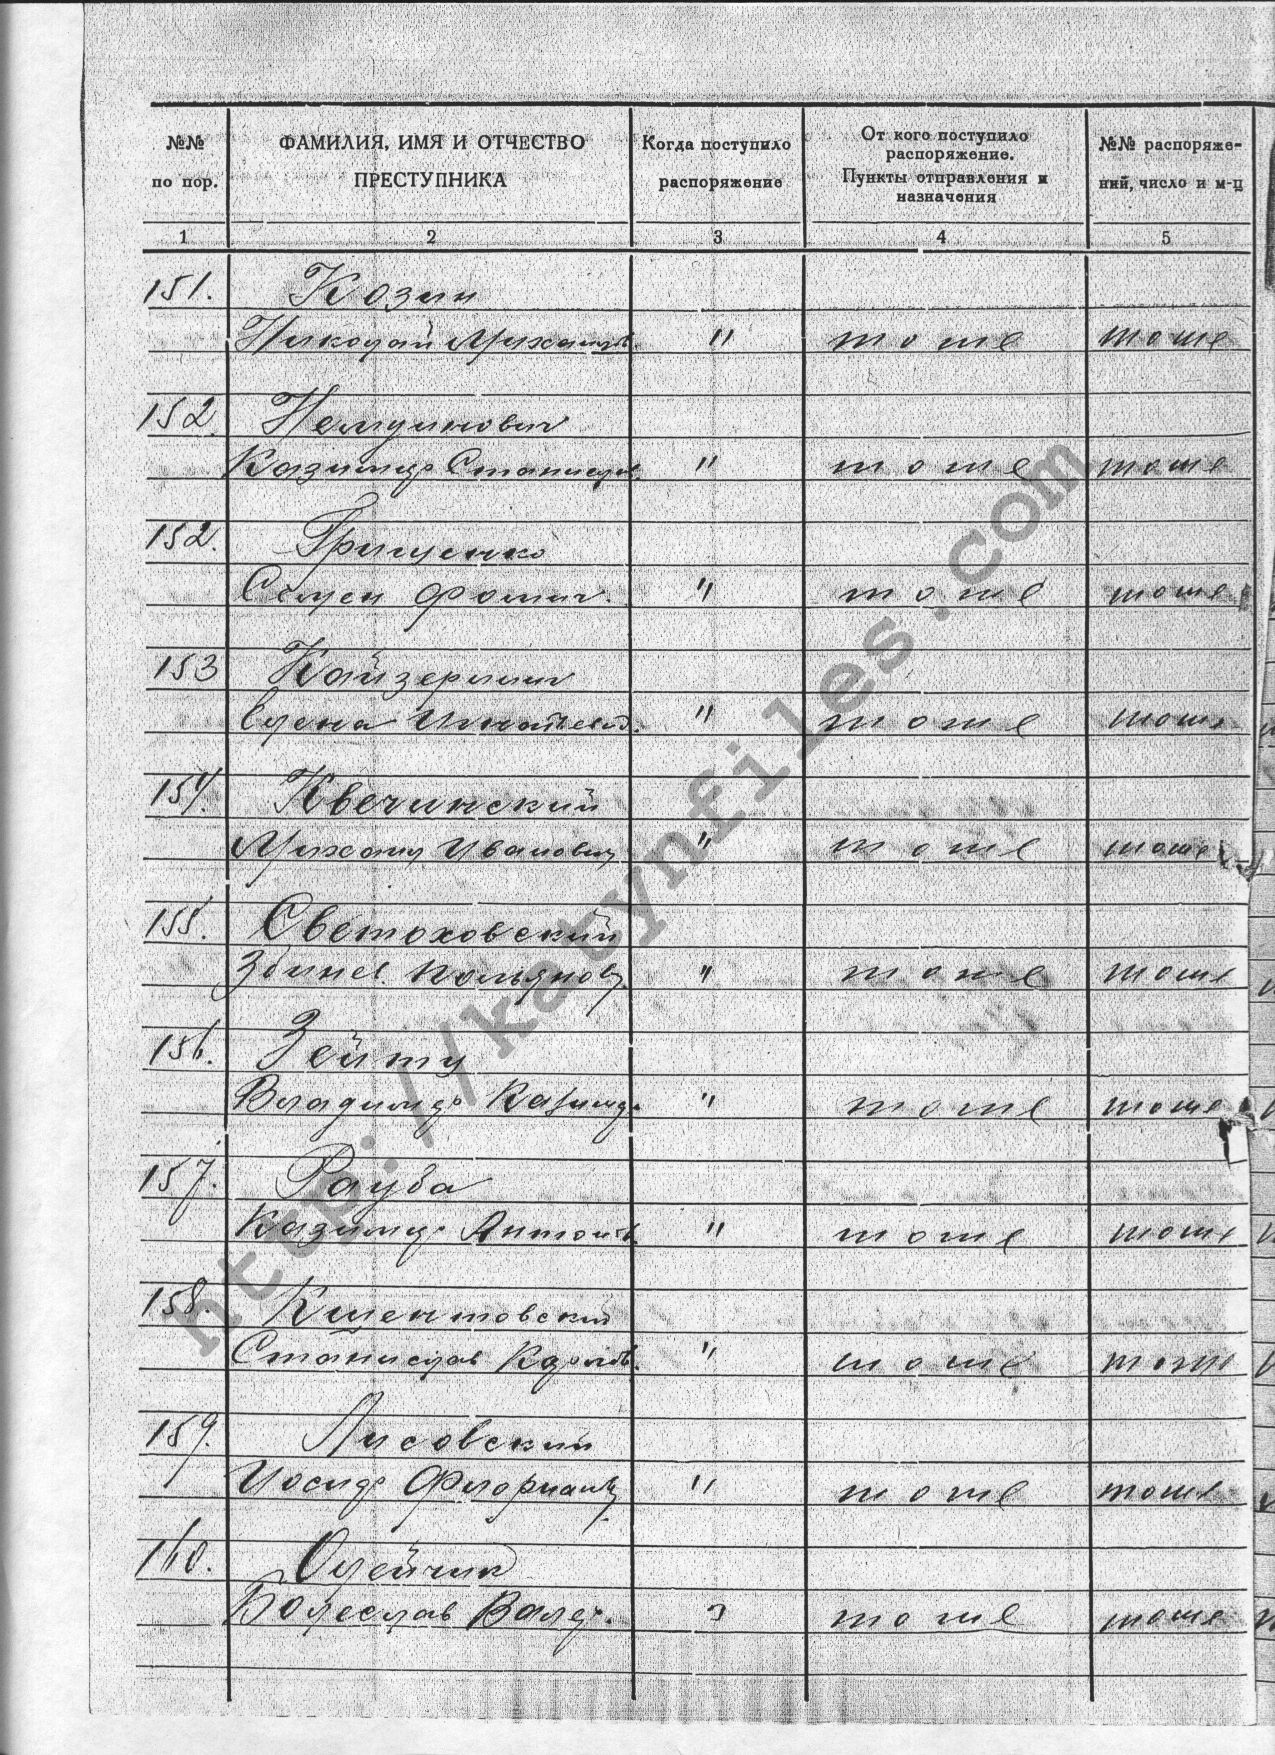 №№
по пор.
ФАМИЛИЯ, ИМЯ И ОТЧЕСТВО
ПРЕСТУПНИКА
Когда поступило
распоряжение
От кого поступило
распоряжение.
Пункты отправления и
назначения
№№ распоряже-
ний, число и м-ц
1 2 3 4 5
151. Козин
Николай Михайлов. " тоже тоже
152. Немцинович
Казимир Станислав. " тоже тоже
152. Грищенко
Семен Фомич. " тоже тоже
153 Кайзерлинг
Елена Игнатьевн. " тоже тоже
154. Квечинский
Михаил Иванович " тоже тоже
155. Светоховский
Збинев. " тоже тоже
156. Зейтц
Владимир Казимир. " тоже тоже
157. Рауба
Казимир Антонов. " тоже тоже
158. Кшентовский
Станислав Карлов. " тоже тоже
159. Лисовский
Иосиф Флорианов. " тоже тоже
160. Олейчик
Болеслав Валер. " тоже тоже
http://katynfiles.com